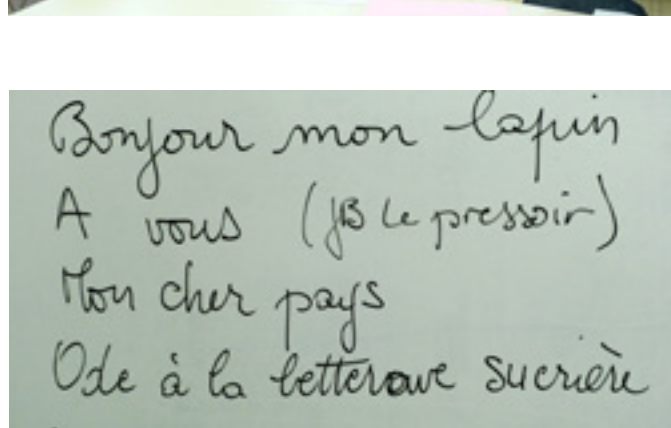 Bonjour mon lapin
A vous (JB Le pressoir)
Mon cher pays
Ode à la betterave sucrière